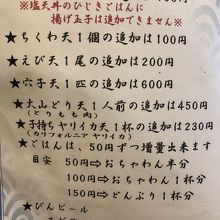 ※塩天丼のひじきごはんに
揚げ玉子は追加できません※
★ちくわ天1個の追加は100円
★えび天1尾の追加は200円
★穴子天1匹の追加は600円
★大山どり天1人前の追加は450円
(とりもも肉)
★子持ちヤリイカ天1杯の追加は230円
(カリフォルニアヤリイカ)
★ごはんは、50円ずつ増量出来ます
目安 50円⇨おちゃわん半分
100円⇨おちゃわん1杯分
150円⇨どんぶり1杯分
★びんビール